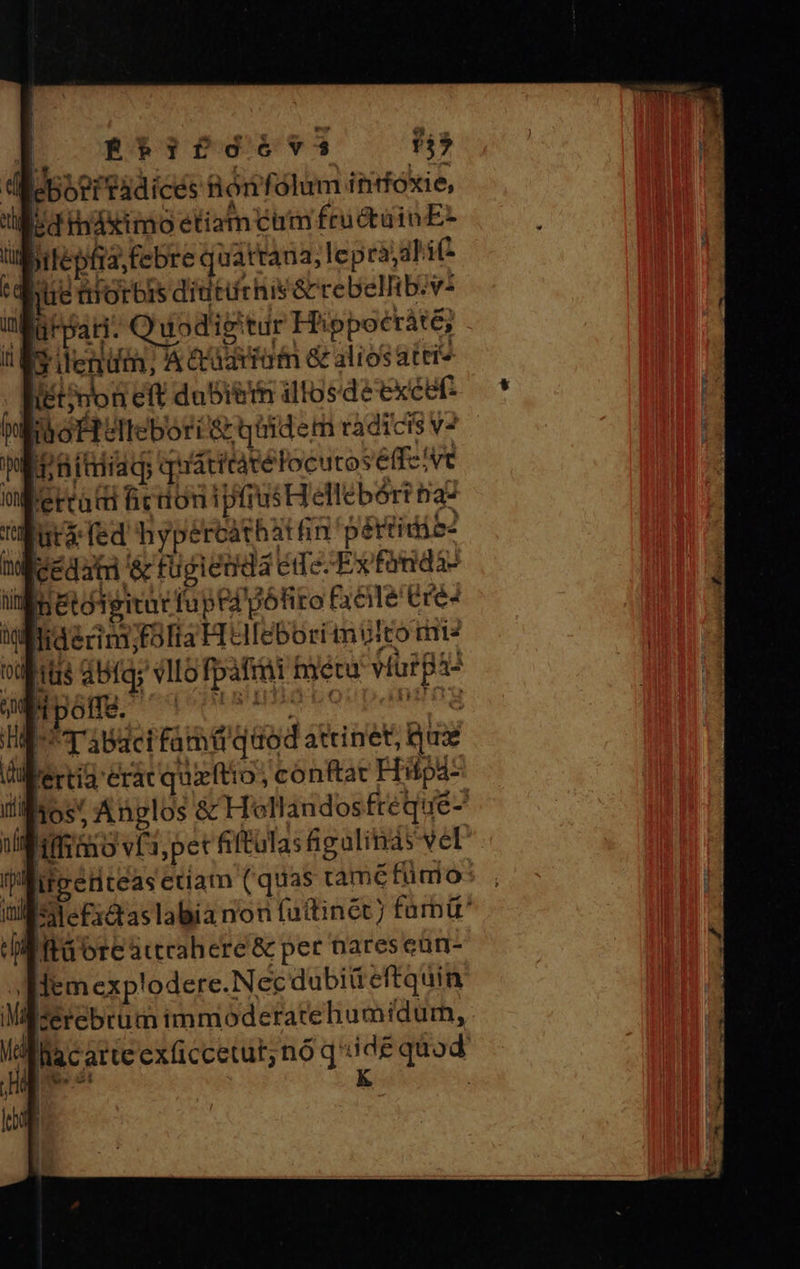 lebori radices non solum in ſroxie,
sed maximo etiam cum fructu in E-
pilepſia, febre quartana, lepra, aliiſ-
que morbis diuturnis & rebellib. v-
ſurpari. Quod igitur Hippocratē,
Galenum, Actuarium & alios atti-
net, non eſt dubium illos de exceſ-
Hellebori & quidem radicis v-
nimiaq; quātitatē locutos eſſe, vt
ipſius Hellebori na-
tura: ſed hypercatharſin pertime-
& fugiendā eſſe. Ex ſunda-
igitur ſupra poſito facile cre-
diderim, folia Hellebori multo mi-
tius abſq; vllo ſpaſmi metu vſurpa-
ri poſſe.
Tabaci fumū quod attinet, quæ
tertia erat quæſtio, conſtat Hiſpa-
nos, Anglos & Hollandos freque-
tiſſimo vſu, per fiſtulas figulinas vel
argenteas etiam (quas tamē fumo
calefactas labia non ſuſtinēt) fumū
ore attrahere & per nares eun-
dem explodere. Nec dubiū eſt quin
cerebrum immoderate humidum,
hac arte exſiccetur, nō q'idē quod
K